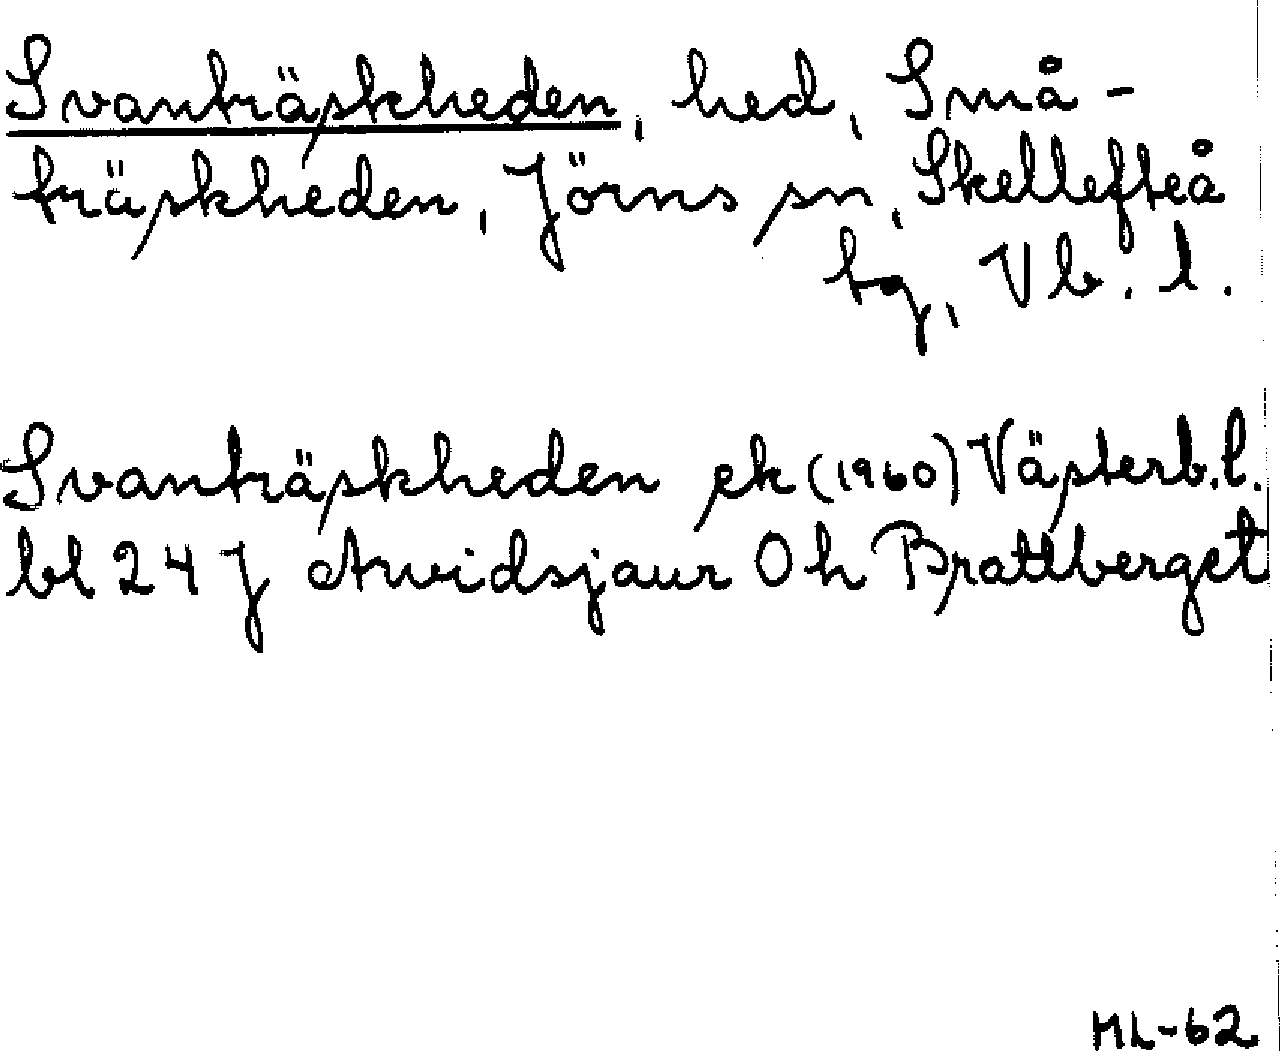 Svanträskheden, hed, Små-
träskheden, Jörns sn, Skellefteå
tg, Vb. l.
Svanträskheden ek (1960) Västerb. l.
bl 24 J Arvidsjaur Ö h Brattberget
ML-62